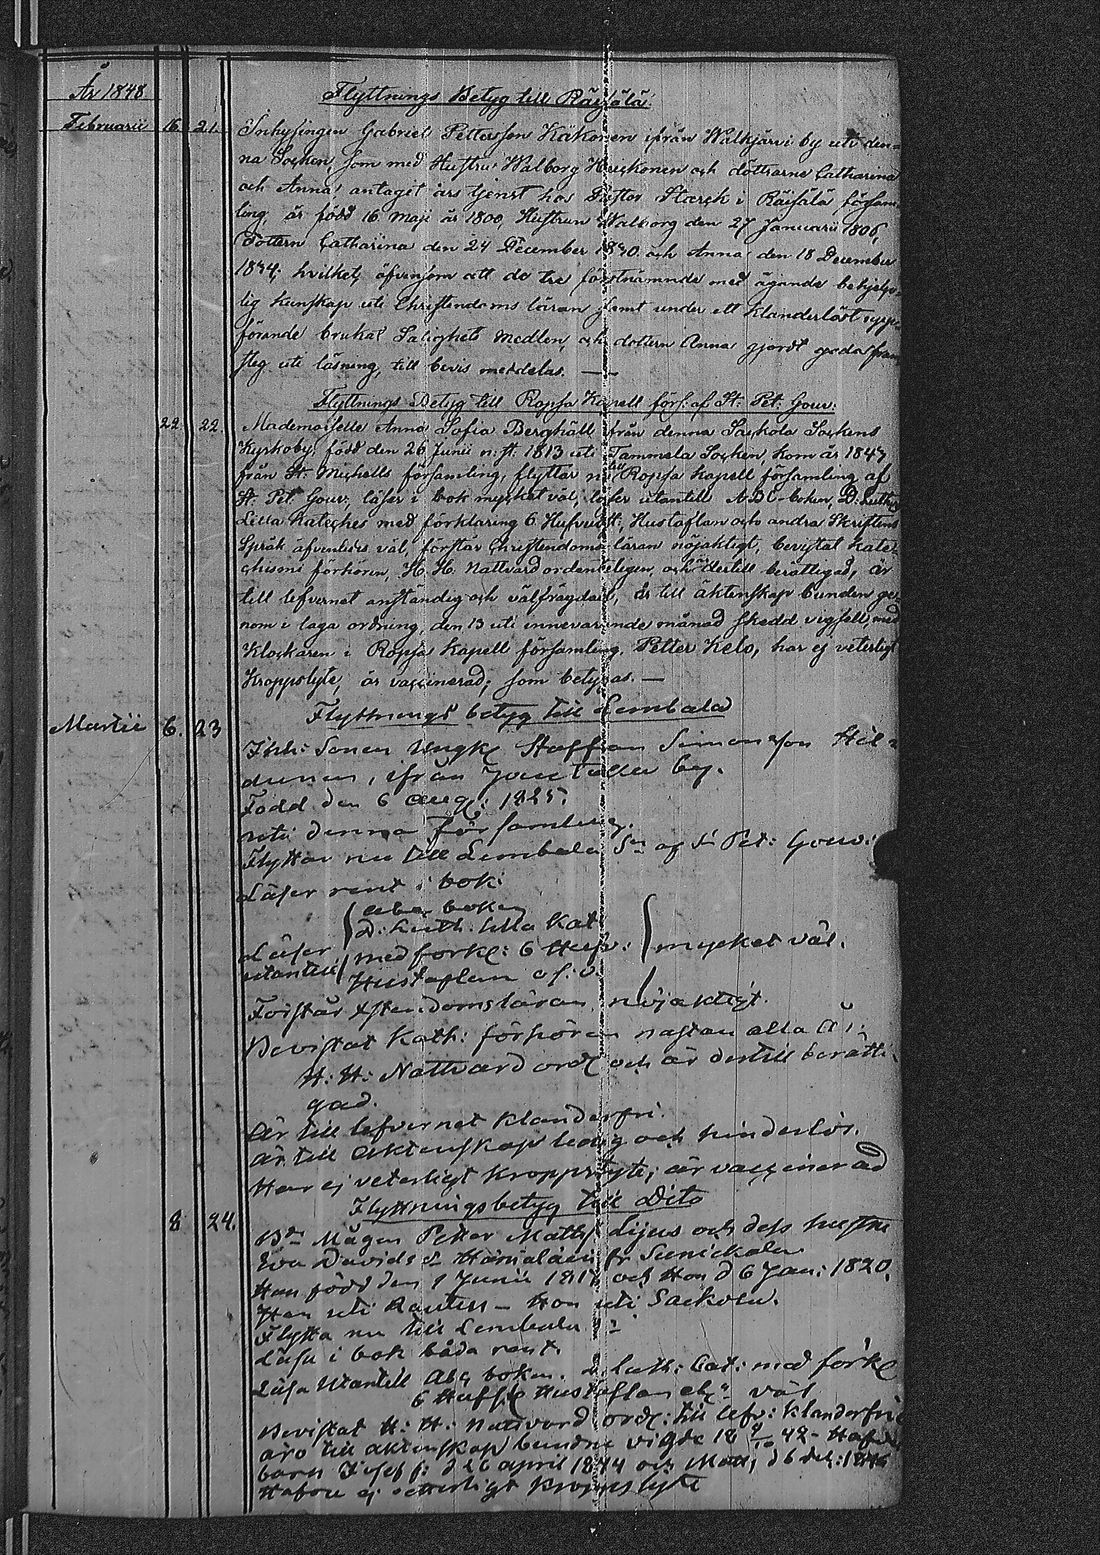 År 1848
Flyttnings Betyg till Räisälä:
Februarii 16. 21. Inhysingen Gabriel Pettersson Käkönen ifrån Walkjärvi by uti den=
na Socken, som med Hustru Walborg Heiskonen och döttrarne Catharina
och Anna antagit års tjenst hos Pastor Starck i Räisälä försam
ling, är född 16 Maji år 1800, Hustrun Walborg den 27 Januarii 1806,
Dottern Catharina den 24 December 1840 och Anna den 18 December
1834; hvilket, äfvensom att de tre förstnämnde med ägande behjelp=
lig kunskap uti Christendoms läran samt under ett klanderlöst upp=
förande brukat Salighets Medlen, och dottern Anna gjordt goda fram
steg uti läsning, till bevis meddelas. —
Flyttnings Betyg till Ropsa Kapell förs: af St: Pet: Gouv:
22. 22. Mademoiselle Anna Sofia Berghäll från denna Sackola Sockens
Kyrkoby, född den 26 Junii n: st: 1813 uti Tammela Socken, kom år 1847
från St: Michells församling, flyttar nu till Ropsa Kapell församling af
St. Pet. Gouv, läser i bok mycket väl, läser utantill A.B.C-boken, D: Luth:
Lilla Kateches med förklaring 6 Hufvudst: Hustaflan och andra Skriftens
Språk äfvenledes väl, förstår Christendoms läran nöjaktigt, bevistat Kate=
chismi förhören, H. H. Nattvard ordenteligen, och dertill berättigad, är
till lefvernet anständig och välfrägdad, är till äktenskap bunden ge=
nom i laga ordning, den 13 uti innevarande månad skedd vigsell med
Klockaren i Ropsa Kapell församling, Petter Kelo, har ej veterligt
Kroppslyte, är vaccinerad; som betygas. —
Flyttnings betyg till Lembala
Martii 6. 23 Inh: Sonen Ungk Staffan Simonsson Hil=
dunen, ifrån by.
Född den 6 Aug: 1825.
uti denna församling.
Flyttar nu till Lembala Sn af St Pet: Gouv:
Läser rent i bok
abc boken
D: Luth: lilla Kat
Läser med forkl: 6 Hufv: mycket väl.
utantill Hustaflan o.s.v.
Förstår Xstendomsläran nöjaktigt.
Bevistat Kath: förhören nästan alla år:
H: H: Nattvard ord och är dertill berätti
gad.
Är till lefvernet klanderfri.
Är till Äktenskap ledig och hinderlös.
Har ej veterligt kroppslyte; är vaccinerad
Flyttningsbetyg till Dito
8 24. Bn Mågen Petter Matts Lijus och dess hustru
Eva Davids dr fr
Han född den 9 Junii och Hon d 6 Jan: 1820.
Han uti Rautus – Hon uti Sackola.
Flytta nu till Lembala Sn
Läsa i bok båda rent.
Läsa Utantill Abc boken. D Luth: Cat: med förkl
6 Hufst Hustaflan väl
Bevistat H: H: Nattvard ord: till lefv: klanderfria
äro till äktenskap bundne vigde 18 9/10 42 – Hafva
barn Josef f: d 26 april 1844 och Matts d 6 dec: 1846
Hafva ej vetterligt kroppslyte